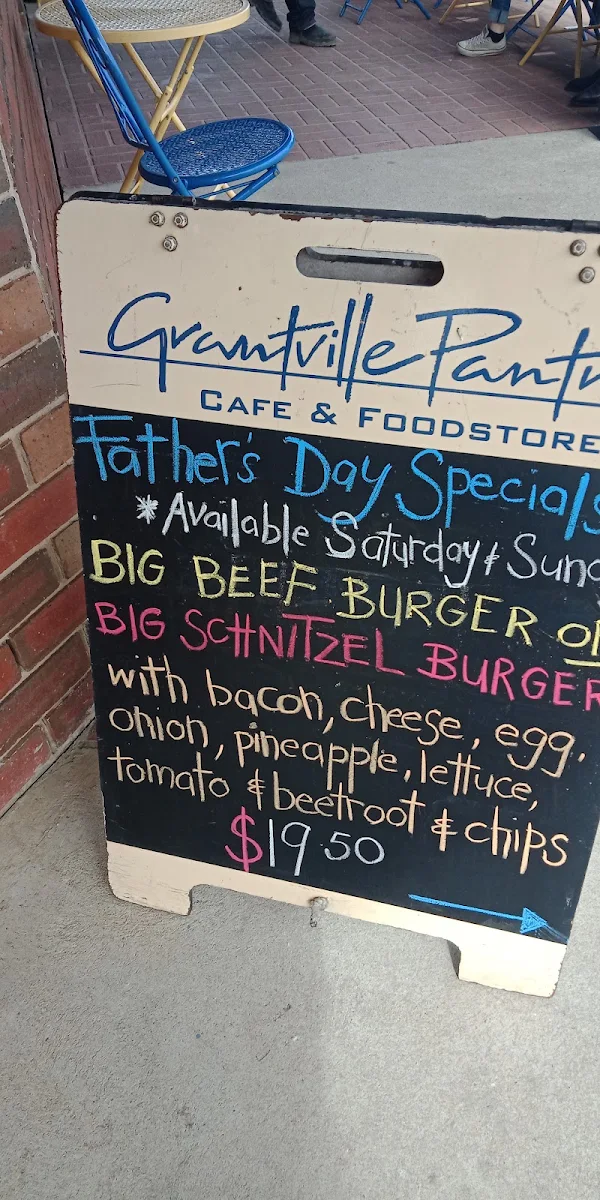 Grantville Pantr
CAFE & FOODSTORE
Father's Day Specials
*Available Saturday & Sund
BIG BEEF BURGER OR
BIG SCHNITZEL BURGER
with bacon, cheese, egg.
onion, pineapple, lettuce,
tomato & beetroot & chips
$19.50